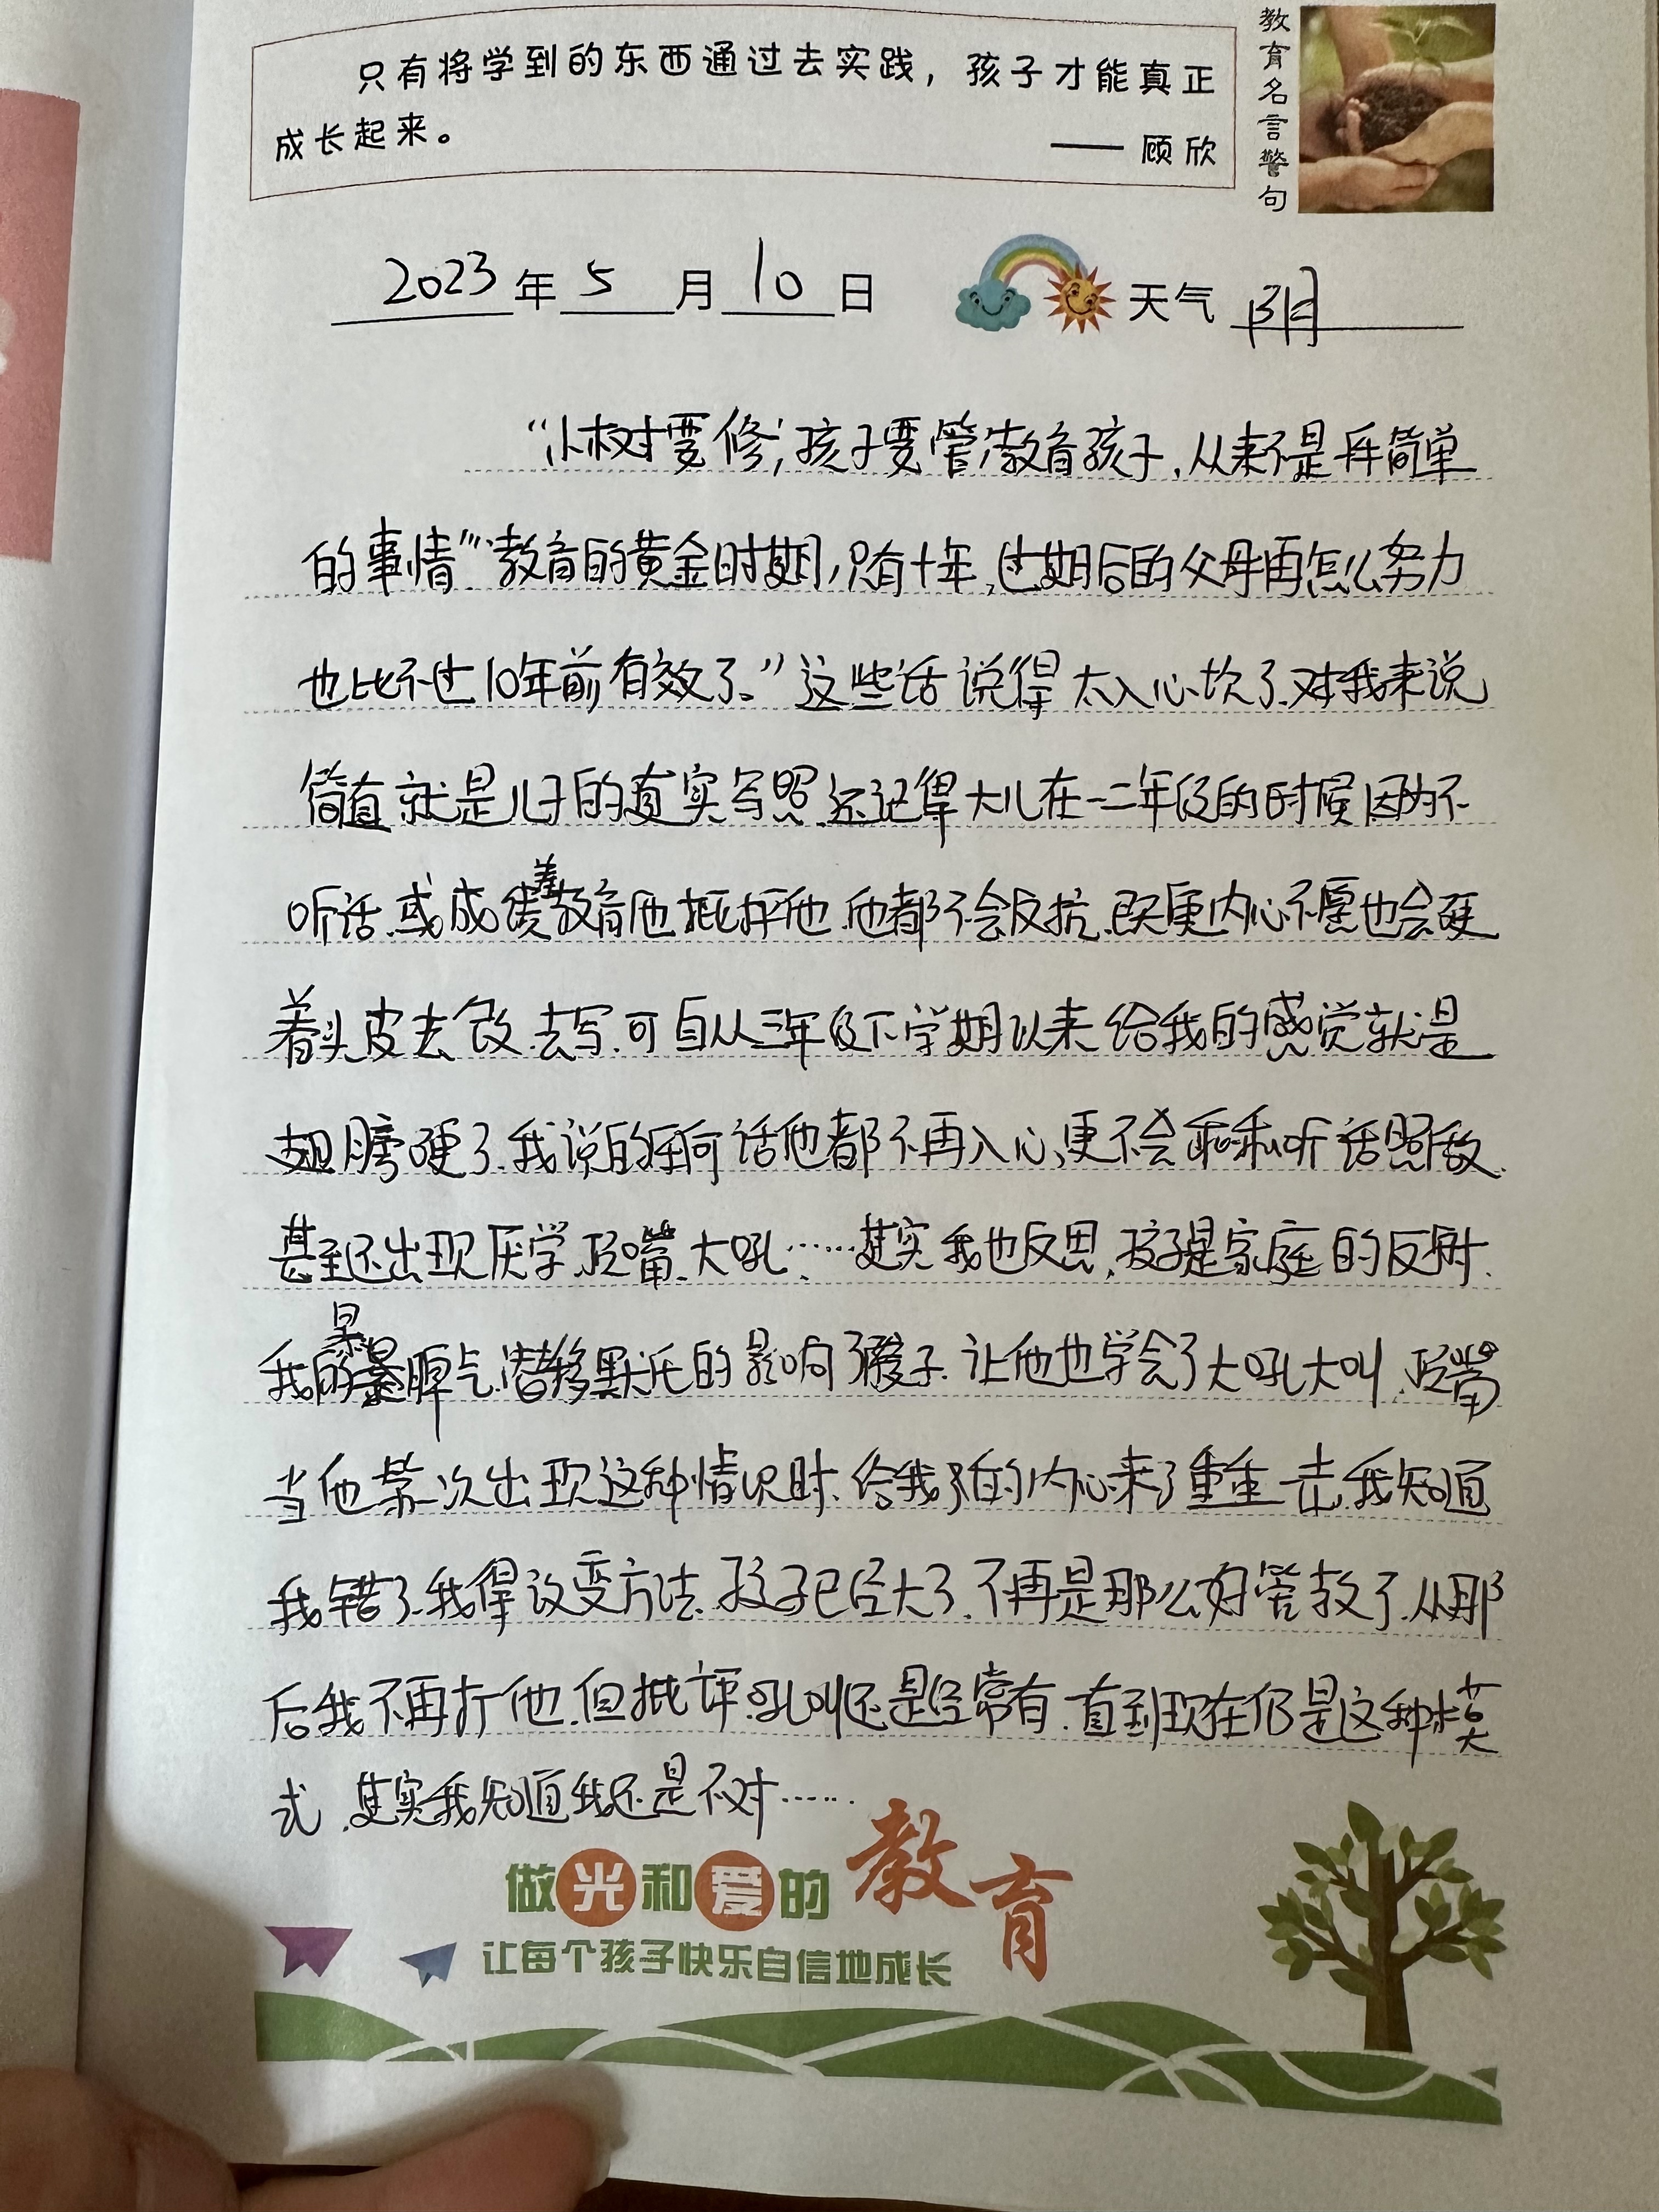 只有将学到的东西通过去实践，孩子才能真正
成长起来。
—— 顾欣
教育名言警句
2023年5月10日
天气 阴
“小树要修，孩子要管，教育孩子，从来不是件简单
的事情”“教育的黄金时期，只有十年，过期后的父母再怎么努力
也比不过10年前有效了。”这些话说得太入心坎了.对我来说
简直就是儿子的真实写照.还记得大儿在一二年级的时候因为不
听话.或成绩差教育他批评他.他都不会反抗.即使内心不愿也会硬
着头皮去改.去写.可自从三年级下学期以来给我的感觉就是
翅膀硬了.我说的任何话他都不再入心,更不会乖乖听话照做.
甚至还出现厌学.顶嘴.大吼……其实我也反思,孩子是家庭的反射.
我的暴脾气.潜移默化的影响了孩子.让他也学会了大吼大叫.顶嘴
当他第一次出现这种情况时.给我的内心来了重重一击.我知道
我错了.我得改变方法.孩子已经大了.不再是那么好管教了.从那
后我不再打他.但批评.吼叫还是经常有.直到现在仍是这种模
式.其实我知道我还是不对……
做光和爱的教育
让每个孩子快乐自信地成长